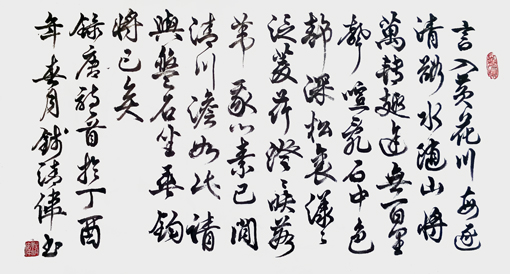 言入黄花川每逐
清谿水隨山將
萬轉趣途無百里
聲喧亂石中色
靜深松裏漾漾
泛菱荇澄澄映葭
葦我心素已閒
清川澹如此請
與盤石坐垂釣
將已矣
錄唐詩音於丁酉
年春月錢清偉書